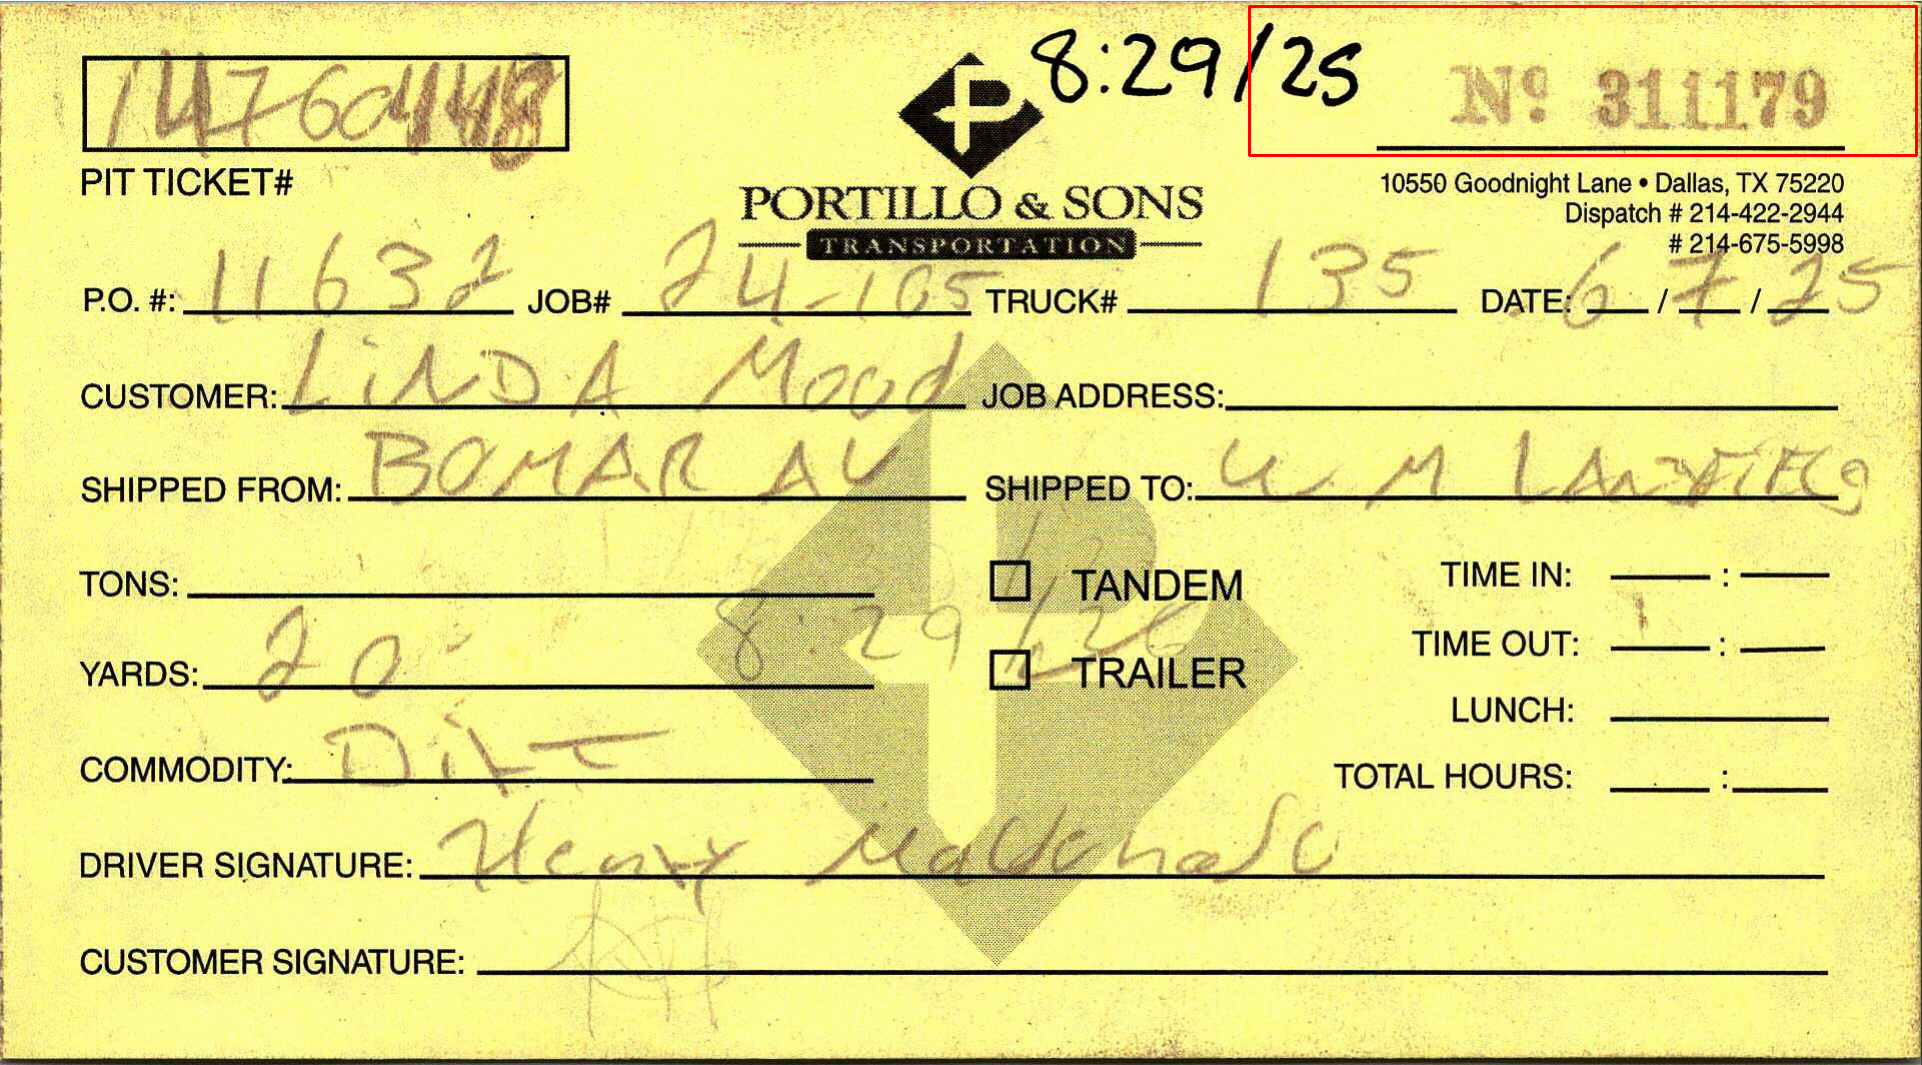 8:29/25
Nº 311179
14760448
PIT TICKET#
PORTILLO & SONS
TRANSPORTATION
10550 Goodnight Lane • Dallas, TX 75220
Dispatch # 214-422-2944
# 214-675-5998
P.O. #: 11632 JOB# 24-105 TRUCK# 135 DATE: 6/7/25
CUSTOMER: LINDA Mood JOB ADDRESS:
SHIPPED FROM: BOMAR AV SHIPPED TO: W M
TONS: TANDEM TIME IN: :
8:29/26
YARDS: 20 TRAILER TIME OUT: :
LUNCH:
COMMODITY: DIRT TOTAL HOURS: :
DRIVER SIGNATURE: Henry
CUSTOMER SIGNATURE: